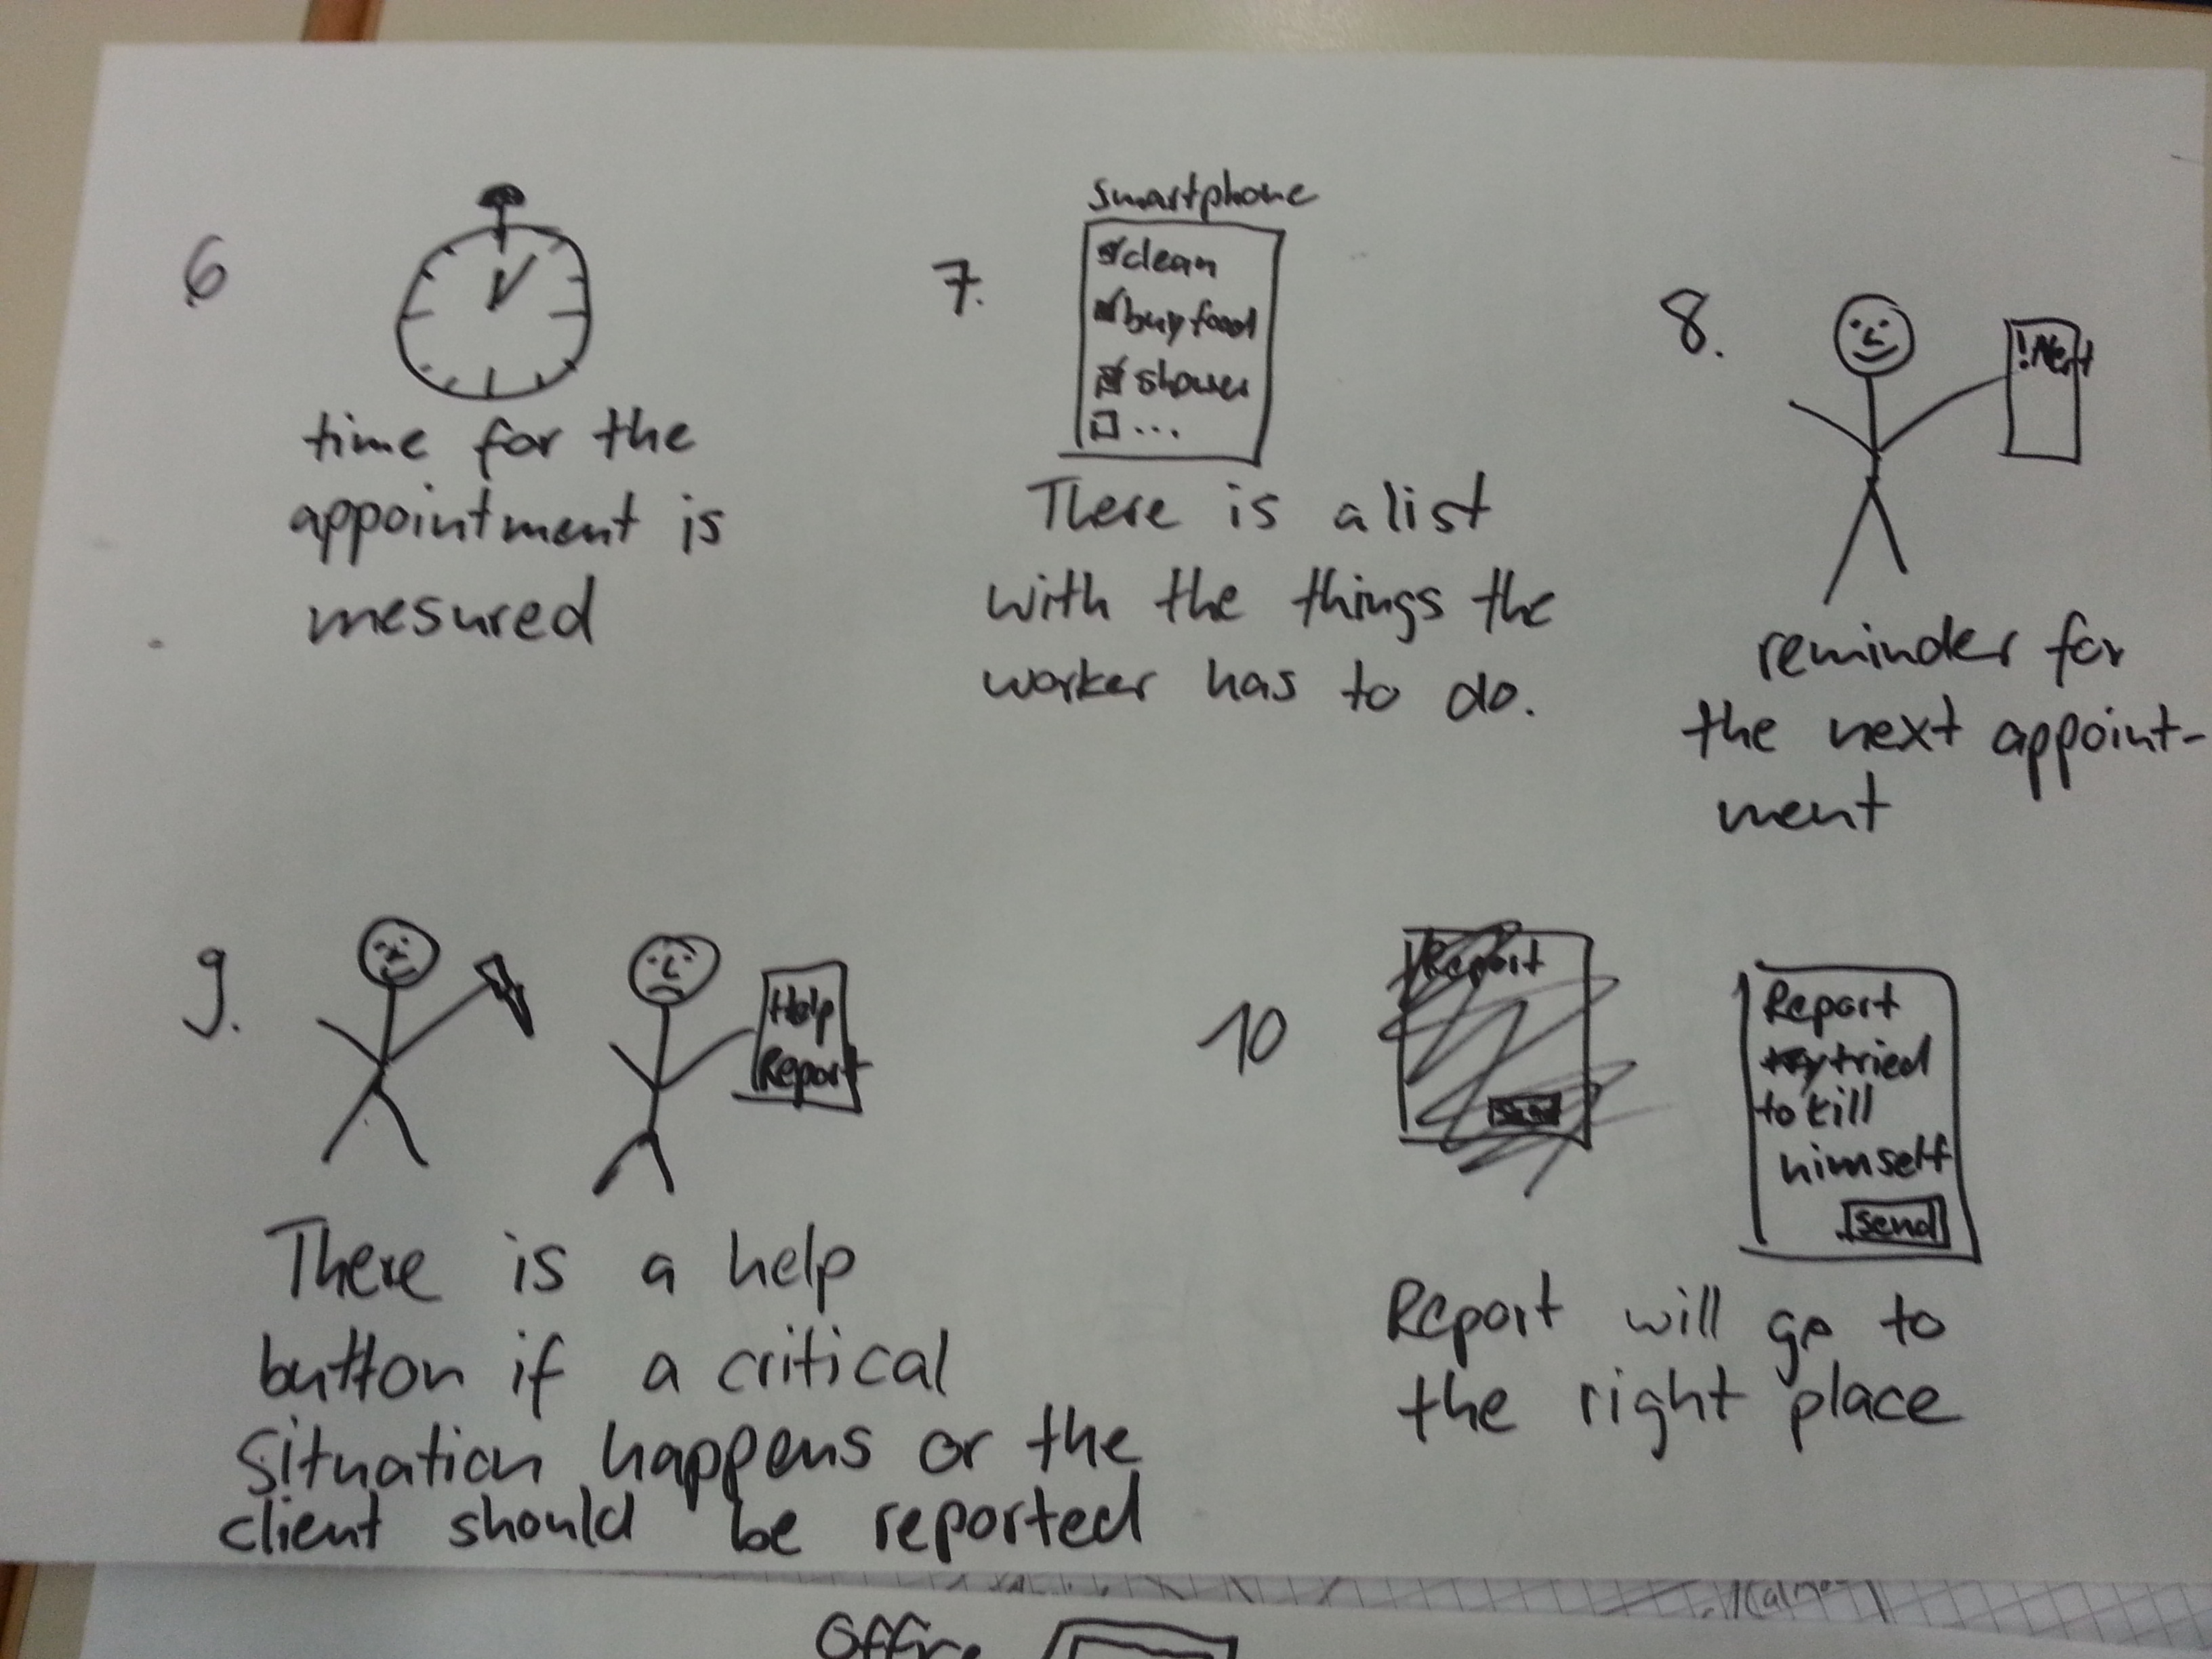 6
time for the
appointment is
mesured
7.
smartphone
clean
buy food
shower
...
There is a list
with the things the
worker has to do.
8.
! Alert
reminder for
the next appoint-
ment
9.
Help
Report
There is a help
button if a critical
Situation happens or the
client should be reported
10
Report
Send
Report
try tried
to kill
himself
Send
Report will go to
the right place
Office